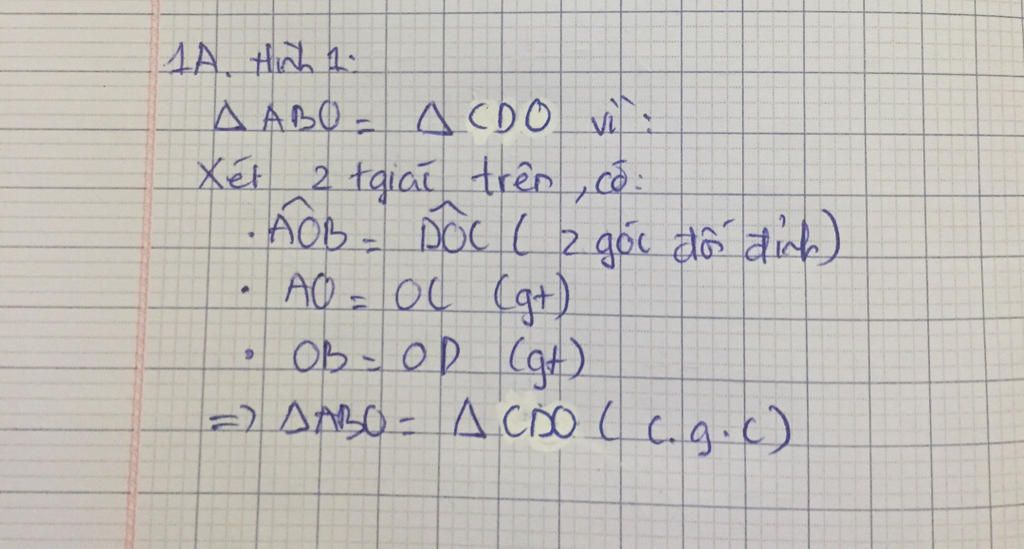 1A. Hình 1:
Δ ABO = Δ CDO vì:
Xét 2 tgiác trên, có:
· AÔB = DÔC ( 2 góc đối đỉnh)
· AO = OC (gt)
· OB = OD (gt)
=> ΔABO = Δ CDO ( c.g.c)